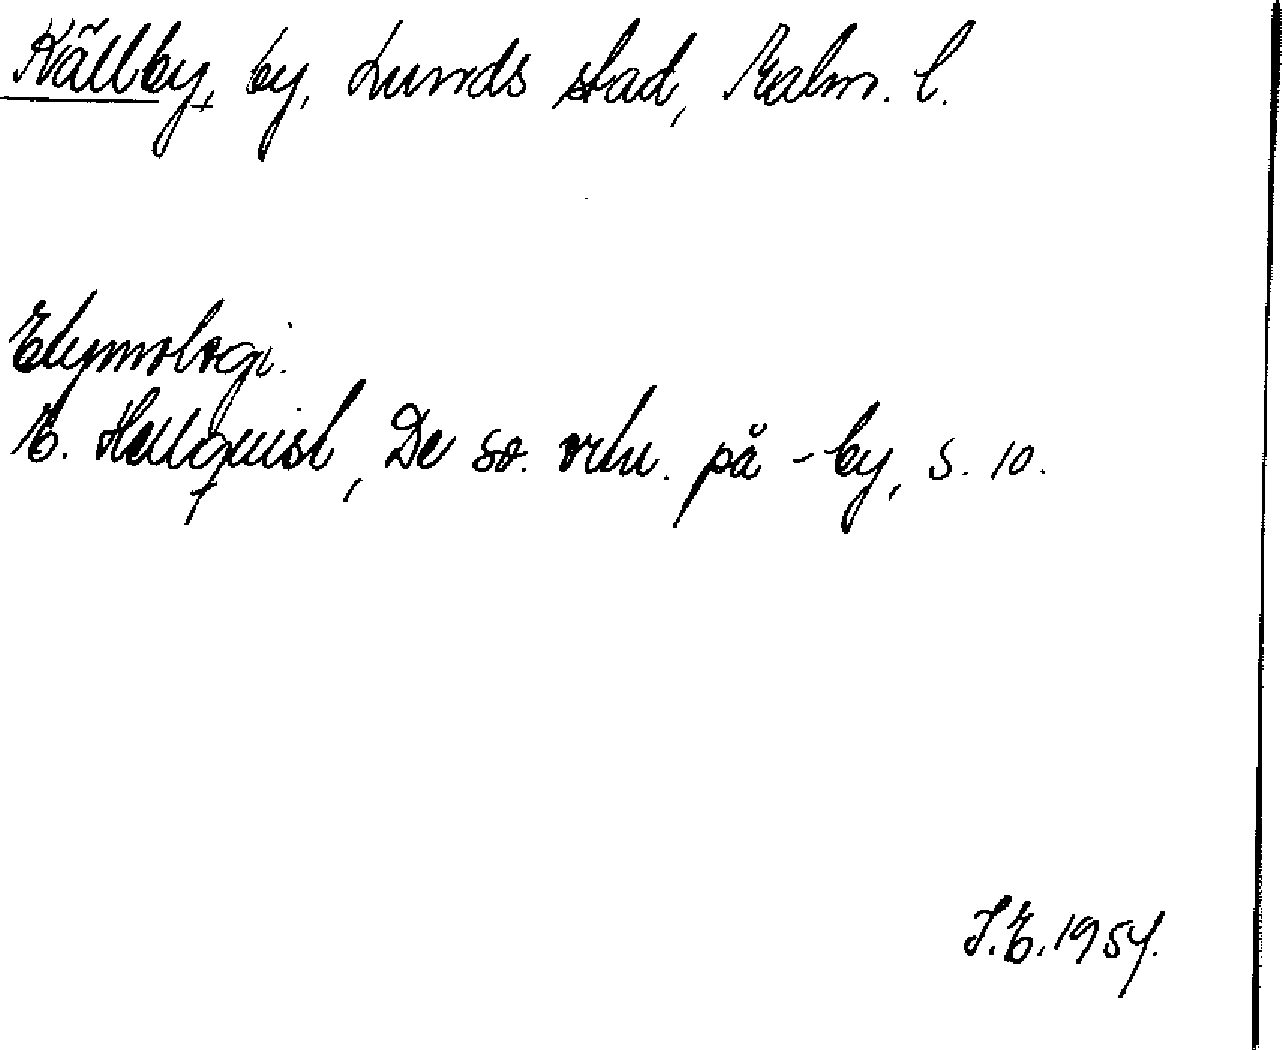 Källby, by, Lunds stad, Malm. l.
Etymologi.
E. Hellquist, De sv. ortn. på -by, s. 10.
I.E. 1954.